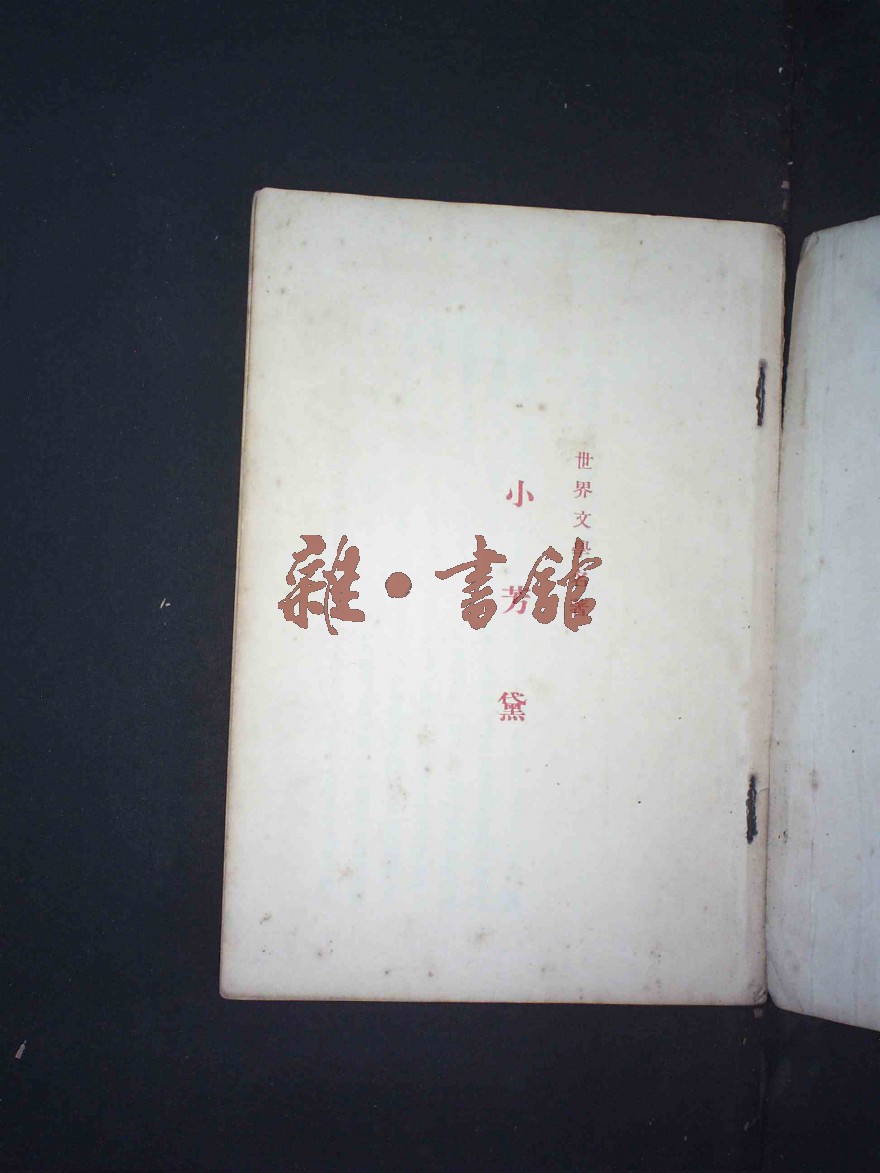 世界文學名著
小芳黛
雜·書館